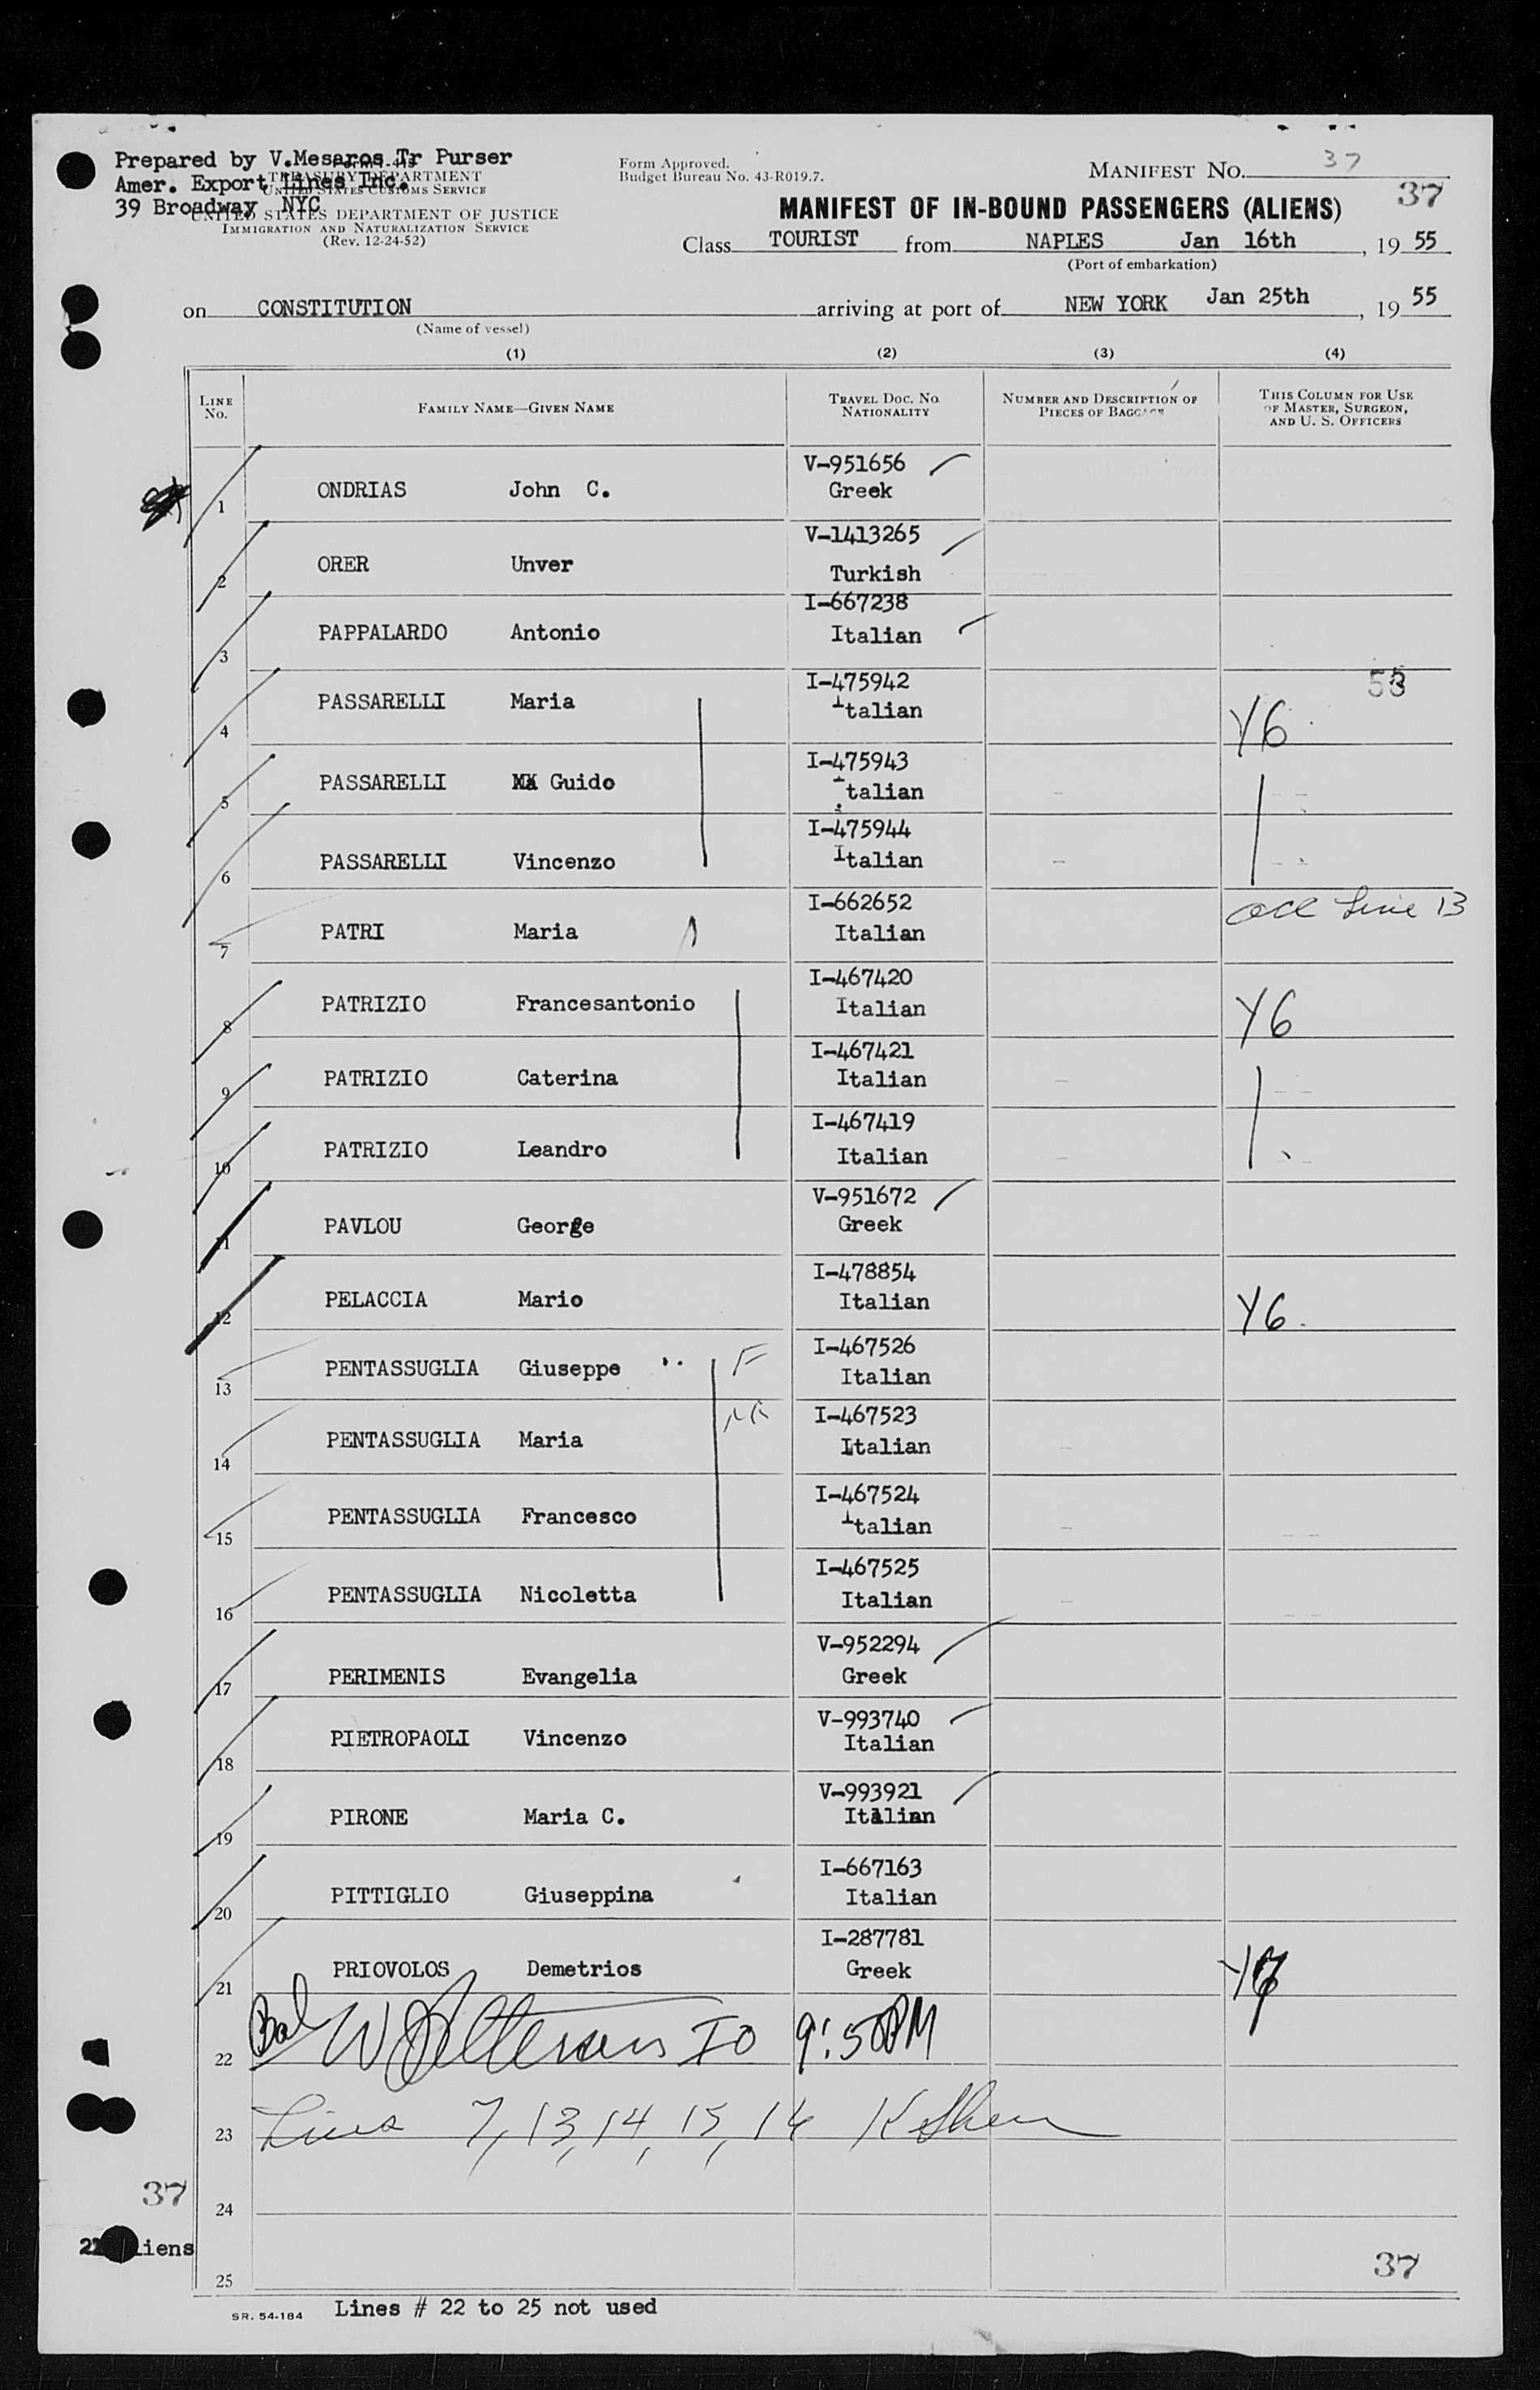 Prepared by V.Mesaros Tr Purser
Amer. Export Lines Inc.
39 Broadway NYC
TREASURY DEPARTMENT
UNITED STATES CUSTOMS SERVICE
UNITED STATES DEPARTMENT OF JUSTICE
IMMIGRATION AND NATURALIZATION SERVICE
(Rev. 12-24-52)
Form Approved.
Budget Bureau No. 43-R019.7.
MANIFEST NO. 37
37
MANIFEST OF IN-BOUND PASSENGERS (ALIENS)
Class TOURIST from NAPLES Jan 16th, 1955
(Port of embarkation)
on CONSTITUTION arriving at port of NEW YORK Jan 25th, 1955
(Name of vessel)
(1) (2) (3) (4)
LINE NO. FAMILY NAME—GIVEN NAME TRAVEL DOC. NO. NATIONALITY NUMBER AND DESCRIPTION OF PIECES OF BAGGAGE THIS COLUMN FOR USE OF MASTER, SURGEON, AND U. S. OFFICERS
1 ONDRIAS John C. V-951656 Greek
2 ORER Unver V-1413265 Turkish
3 PAPPALARDO Antonio I-667238 Italian
4 PASSARELLI Maria I-475942 Italian Y6
5 PASSARELLI Guido I-475943 Italian
6 PASSARELLI Vincenzo I-475944 Italian
7 PATRI Maria I-662652 Italian Line 13
8 PATRIZIO Francesantonio I-467420 Italian Y6
9 PATRIZIO Caterina I-467421 Italian
10 PATRIZIO Leandro I-467419 Italian
11 PAVLOU George V-951672 Greek
12 PELACCIA Mario I-478854 Italian Y6
13 PENTASSUGLIA Giuseppe F I-467526 Italian
14 PENTASSUGLIA Maria I-467523 Italian
15 PENTASSUGLIA Francesco I-467524 Italian
16 PENTASSUGLIA Nicoletta I-467525 Italian
17 PERIMENIS Evangelia V-952294 Greek
18 PIETROPAOLI Vincenzo V-993740 Italian
19 PIRONE Maria C. V-993921 Italian
20 PITTIGLIO Giuseppina I-667163 Italian
21 PRIOVOLOS Demetrios I-287781 Greek
22 Bal IO 9:50PM
23 Lines 7, 13, 14, 15, 16
37
24
25
37
SR. 54-184 Lines # 22 to 25 not used